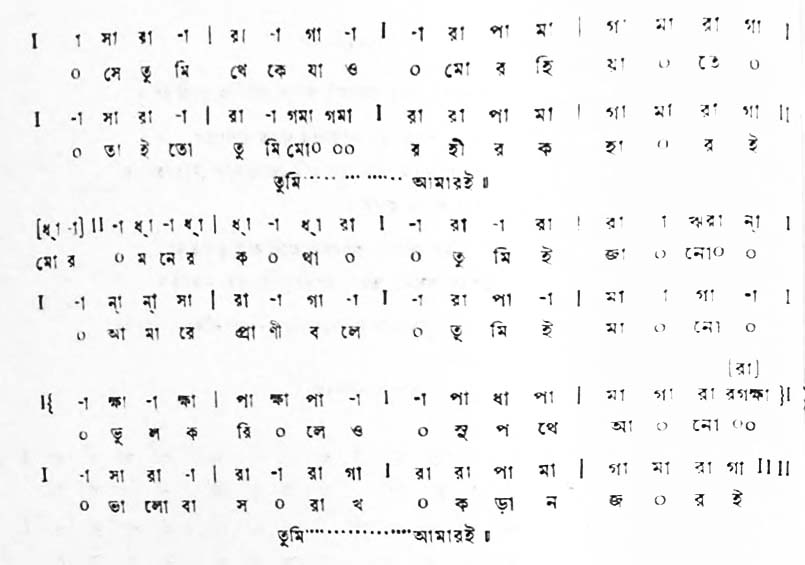 I া সা রা -া | রা -া গা -া I -া রা পা মা | গা মা রা গা I
০ সে তু মি থে কে যা ও ০ মো র হি য়া ০ তে ০
I -া সা রা -া | রা -া গমা গমা I রা রা পা মা | গা মা রা গা II
০ তা ই তো তু মি মো০ ০০ র হী র ক হা ০ র ই
তুমি............আমারই॥
[ধ্া -া] II -া ধ্া -া ধ্া | ধ্া -া ধ্া রা I -া রা -া রা | রা া ঋরা ন্া I
মো র ০ ম নে র ক ০ থা ০ ০ তু মি ই জা ০ নো০ ০
I -া ন্া ন্া সা | রা -া গা -া I -া রা পা -া | মা া গা -া I
০ আ মা রে প্রা ণী ব লে ০ তু মি ই মা ০ নো ০
[রা]
I{ -া ক্ষা -া ক্ষা | পা ক্ষা পা -া I -া পা ধা পা | মা গা রা রগক্ষা }I
০ ভু ল ক রি ০ লে ও ০ সু প থে আ ০ নো ০০
I -া সা রা -া | রা -া রা গা I রা রা পা মা | গা মা রা গা II II
০ ভা লো বা স ০ রা খ ০ ক ড়া ন জ ০ র ই
তুমি................আমারই॥